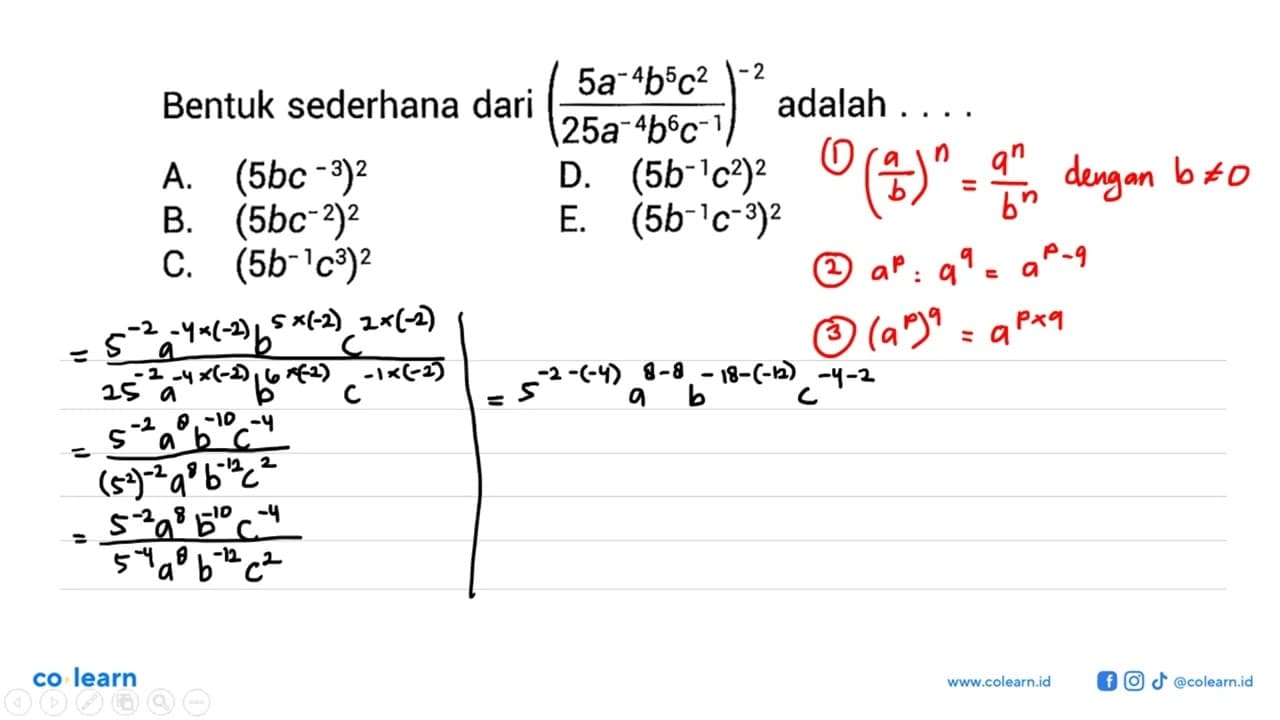 Bentuk sederhana dari (5a⁻⁴b⁵c²/25a⁻⁴b⁶c⁻¹)⁻² adalah . . . .
A. (5bc⁻³)²
B. (5bc⁻²)²
C. (5b⁻¹c³)²
D. (5b⁻¹c²)²
E. (5b⁻¹c⁻³)²
① (a/b)ⁿ = aⁿ/bⁿ dengan b ≠ 0
② a^p : a^q = a^(p-q)
③ (a^p)^q = a^(p×q)
= 5^(-2) a^(-4×(-2)) b^(5×(-2)) c^(2×(-2)) / 25^(-2) a^(-4×(-2)) b^(6×(-2)) c^(-1×(-2))
= 5⁻²a⁸b⁻¹⁰c⁻⁴ / (5²)⁻²a⁸b⁻¹²c²
= 5⁻²a⁸b⁻¹⁰c⁻⁴ / 5⁻⁴a⁸b⁻¹²c²
= 5^(-2-(-4)) a^(8-8) b^(-18-(-12)) c^(-4-2)
co learn
www.colearn.id
@colearn.id